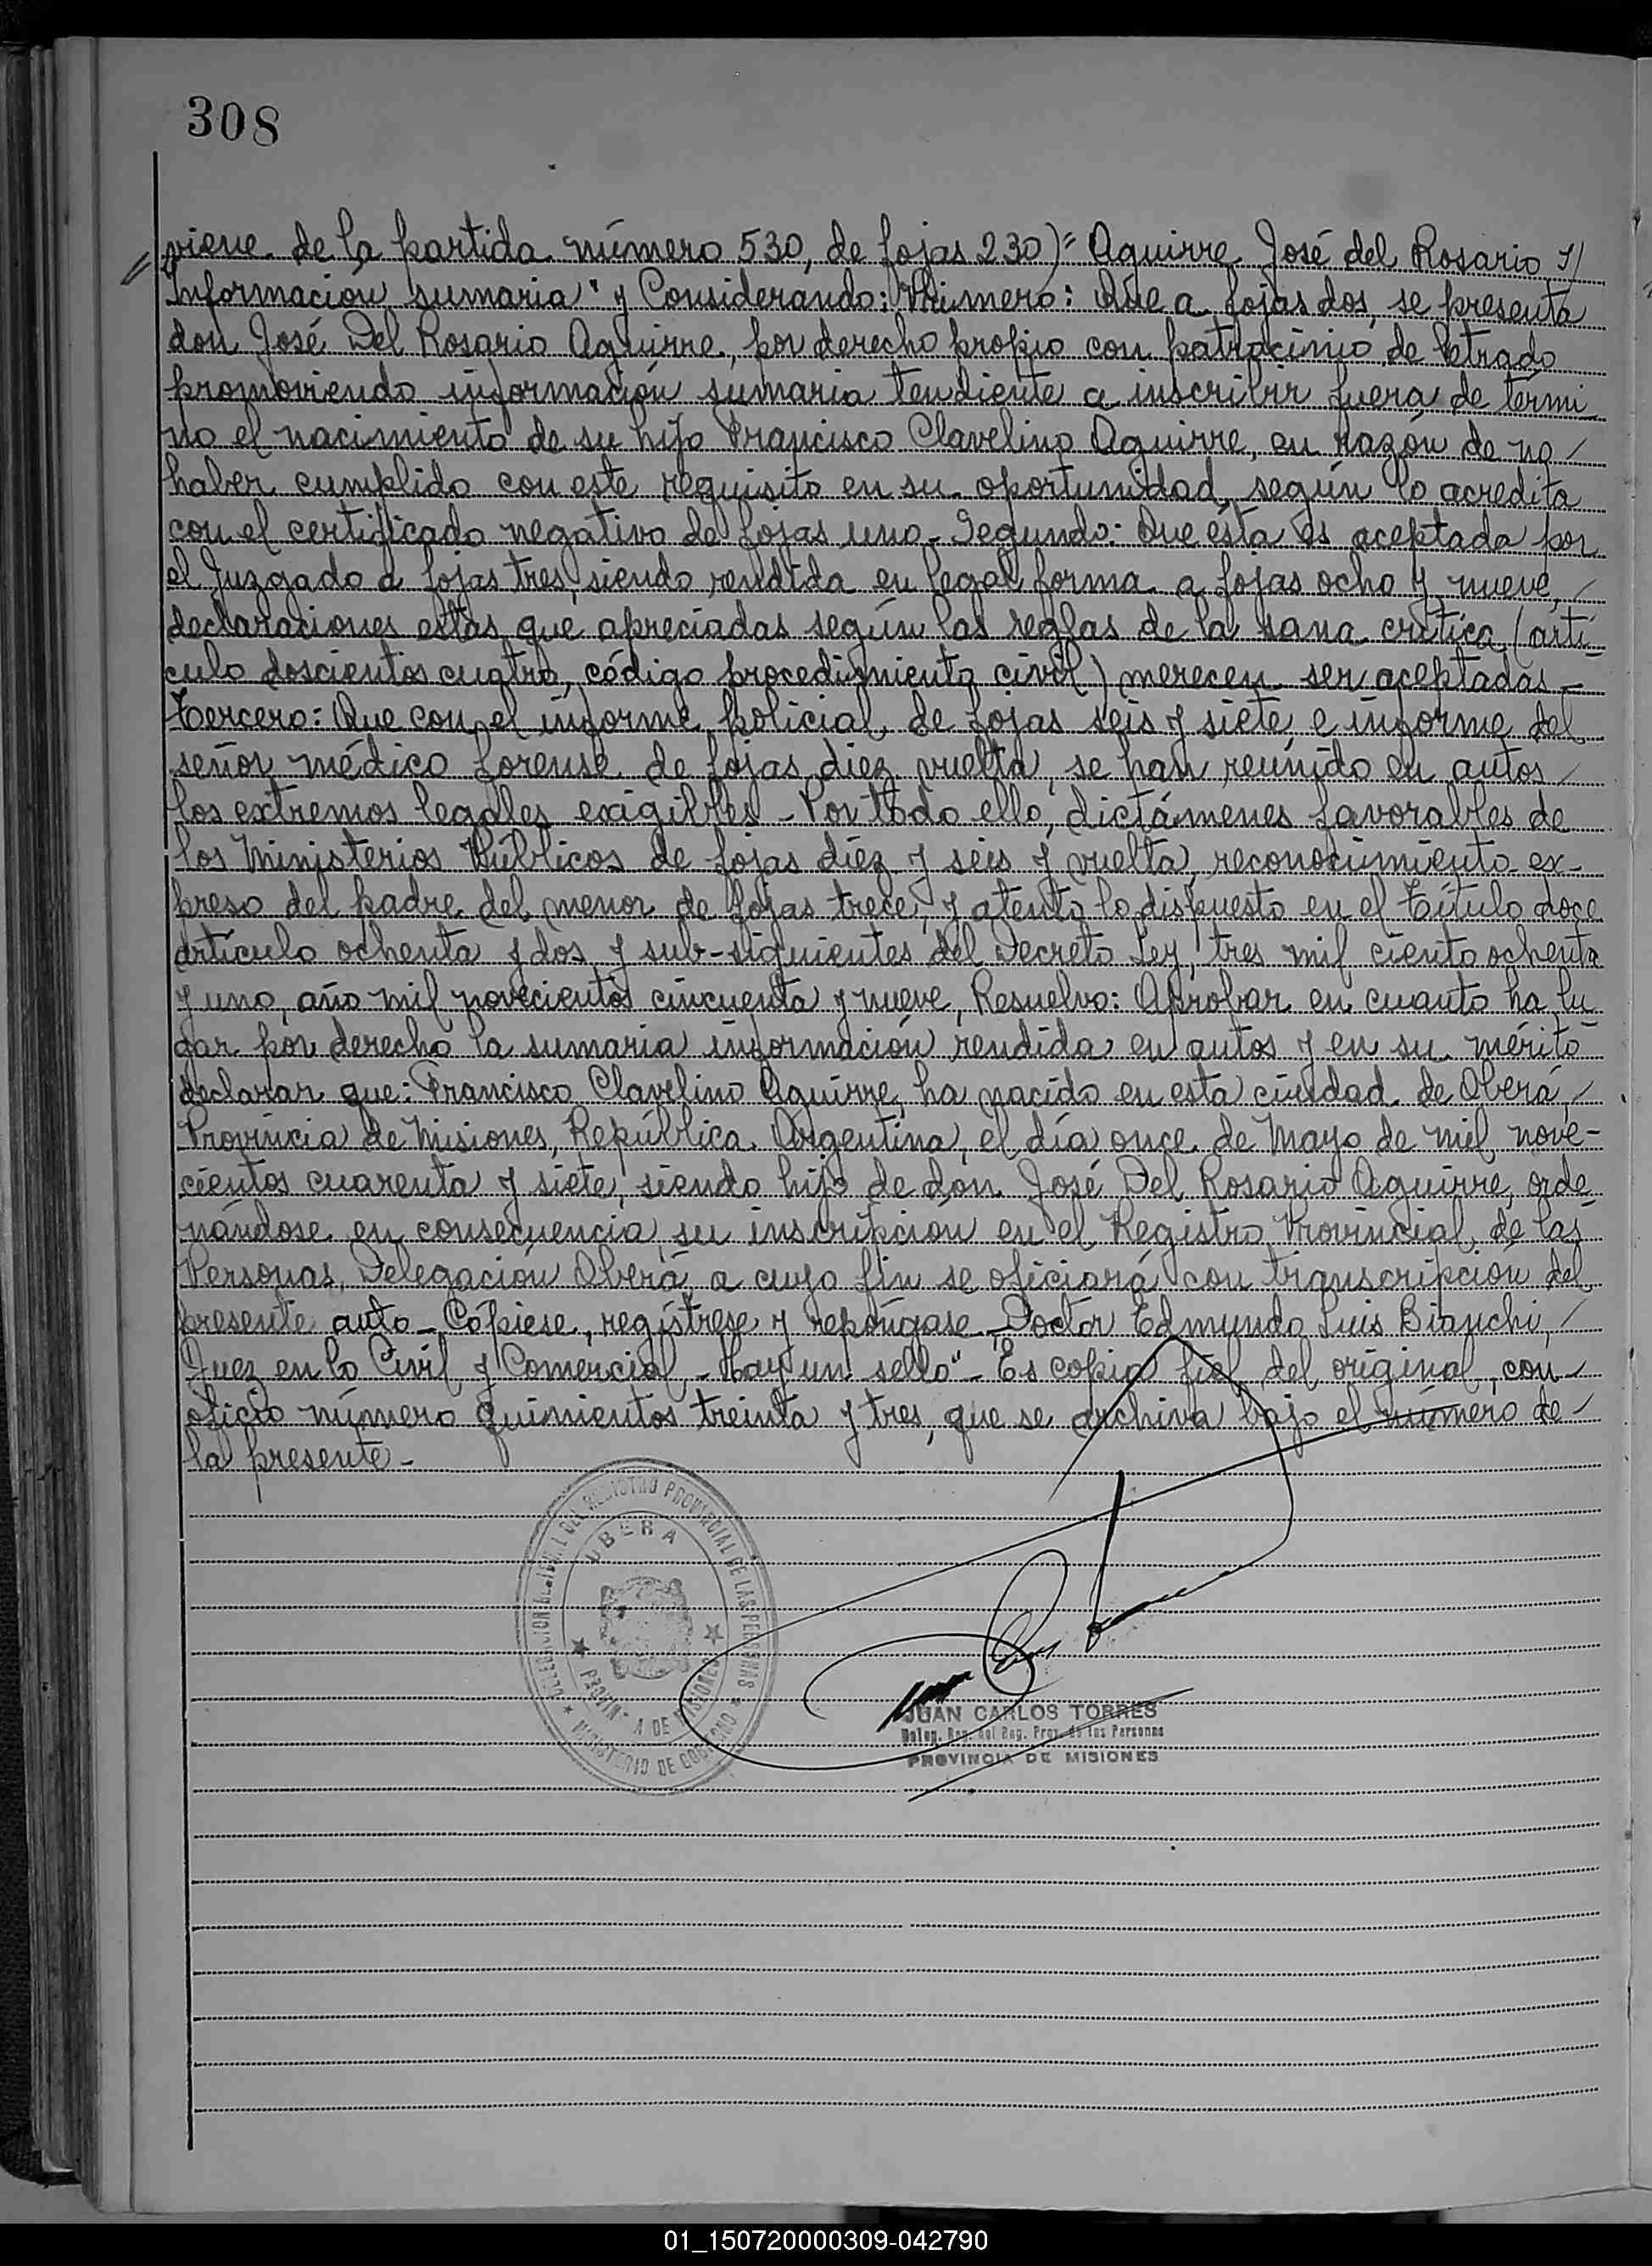 308
// viene de la partida número 530, de fojas 230)= Aguirre, José del Rosario s/
Información sumaria" y Considerando: Primero: Que a fojas dos, se presenta
don José Del Rosario Aguirre, por derecho propio con patrocinio de letrado
promoviendo información sumaria tendiente a inscribir fuera de térmi
no el nacimiento de su hijo Francisco Clavelino Aguirre, en razón de no /
haber cumplido con este requisito en su oportunidad, según lo acredita
con el certificado negativo de fojas uno - Segundo: Que ésta es aceptada por
el Juzgado a fojas tres, siendo rendida en legal forma a fojas ocho y nueve, /
declaraciones estas que apreciadas según las reglas de la sana crítica (artí-
culo doscientos cuatro, código procedimiento civil) merecen ser aceptadas -
Tercero: Que con el informe policial de fojas seis y siete e informe del
señor médico forense de fojas diez vuelta, se han reunido en autos /
los extremos legales exigibles - Por todo ello, dictámenes favorables de
los Ministerios Públicos de fojas diez y seis y vuelta, reconocimiento ex-
preso del padre del menor de fojas trece, y atento lo dispuesto en el Título doce
artículo ochenta y dos y sub-siguientes del Decreto Ley, tres mil ciento ochenta
y uno, año mil novecientos cincuenta y nueve, Resuelvo: Aprobar en cuanto ha lu
gar por derecho la sumaria información rendida en autos y en su mérito
declarar que: Francisco Clavelino Aguirre, ha nacido en esta ciudad de Oberá, /
Provincia de Misiones, República Argentina, el día once de Mayo de mil nove-
cientos cuarenta y siete, siendo hijo de don José Del Rosario Aguirre, orde
nándose en consecuencia su inscripción en el Registro Provincial de las
Personas, Delegación Oberá a cuyo fin se oficiará con transcripción del
presente auto - Cópiese, regístrese y repóngase - Doctor Edmundo Luis Bianchi, /
Juez en lo Civil y Comercial - Hay un sello" - Es copia fiel del original, con -
oficio número quinientos treinta y tres, que se archiva bajo el número de /
la presente -
DEL REGISTRO PROVINCIAL DE LAS PERSONAS
OBERA
PROVINCIA DE MISIONES
MINISTERIO DE GOBIERNO
JUAN CARLOS TORRES
Deleg. Reg. del Reg. Prov. de las Personas
PROVINCIA DE MISIONES
01_150720000309-042790